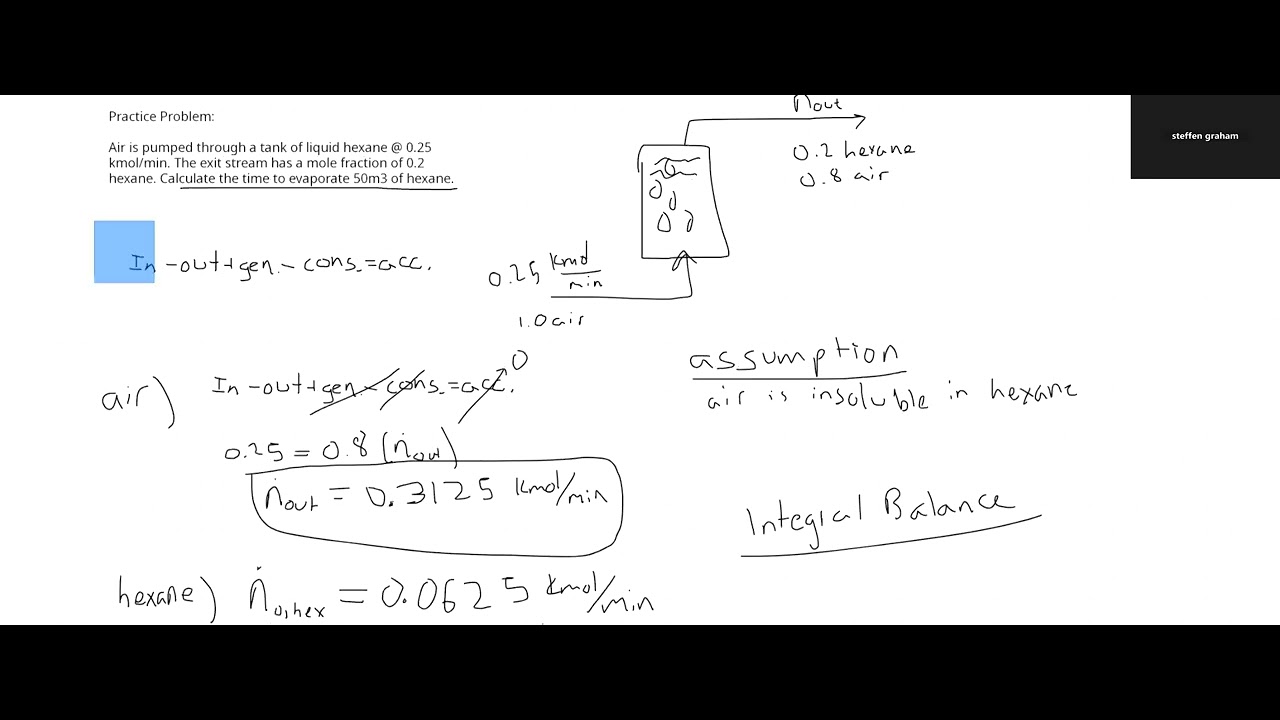 Practice Problem:
Air is pumped through a tank of liquid hexane @ 0.25
kmol/min. The exit stream has a mole fraction of 0.2
hexane. Calculate the time to evaporate 50m3 of hexane.
ṅout
0.2 hexane
0.8 air
steffen graham
In -out+gen.- cons.=acc.
0.25 kmol/min
1.0 air
air) In -out+gen.- cons.=acc. 0
0.25 = 0.8 (ṅout)
ṅout = 0.3125 kmol/min
assumption
air is insoluble in hexane
Integral Balance
hexane) ṅo,hex = 0.0625 kmol/min